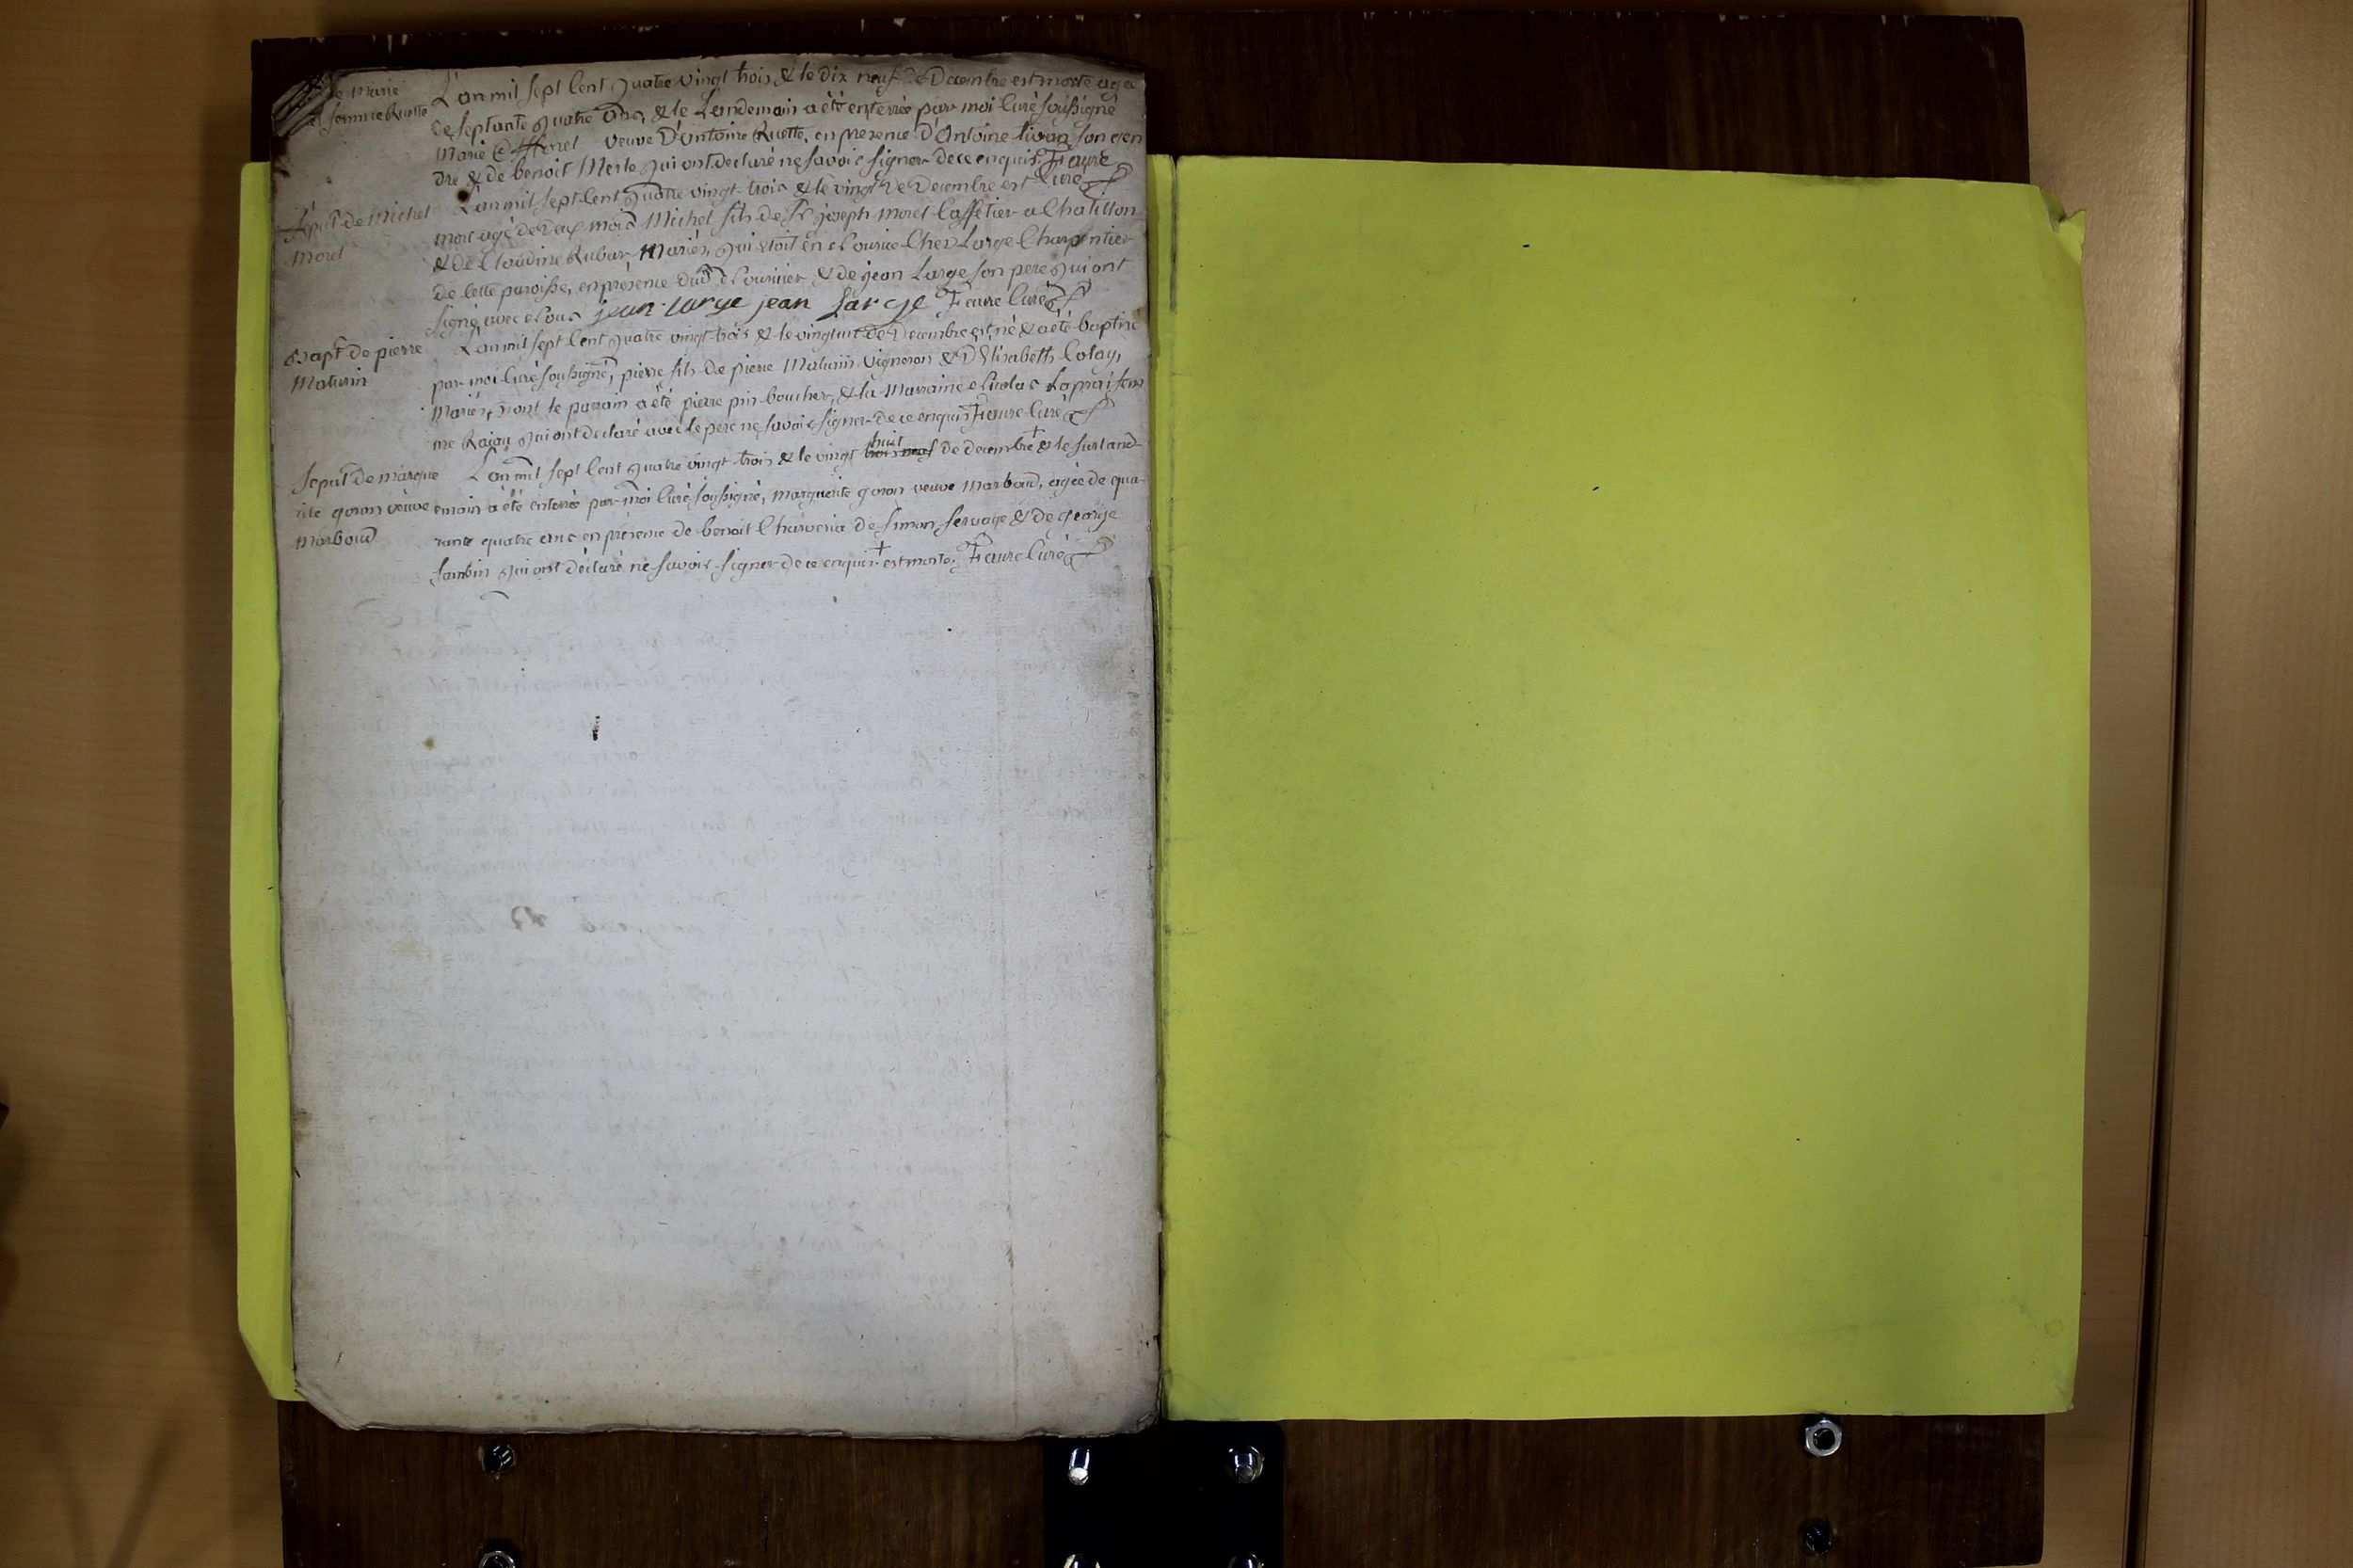 de Marie
femme Ruette
L'an mil sept Cent quatre vingt trois & le dix neuf de Decembre est morte agée
de septante quatre ans, & le Lendemain a été enterrée par moi Curé soussigné
Marie veuve D'antoine Ruette, en presence D'Antoine son gen
dre & de benoit Merle qui ont declaré ne savoir signer de ce enquis. Feure
Curé
Sepult de Michel
Morel
L'an mil sept Cent quatre vingt trois & le vingt de Decembre est
mort agé de deux mois Michel fils de Sr joseph morel Caffetier a Chatillon
& de Claudine Rubar Mariés, qui etoit en Nourice Chez Large Charpentier
de Cette paroisse, en presence dud Nouricier & de jean Large son pere qui ont
signé avec Nous jean large jean Large Feure Curé
Bapt de pierre
Maturin
L'an mil sept Cent quatre vingt trois & le vingt un de Decembre est né & a été baptisé
par moi Curé soussigné, pierre fils de pierre Maturin Vigneron & D'Elisabeth Colay,
Mariés, dont le parrain a été pierre pin boucher, & la Marraine Nicolas fem
me Rajau qui ont declaré avec le pere ne savoir signer de ce enquis Feure Curé
Sepult de margue
rite goron veuve
Marboud
L'an mil sept Cent quatre vingt trois & le vingt huit de decembre + & le surland
emain a été enterrée par moi Curé soussigné, marguerite goron veuve Marboud, agée de qua
rante quatre ans en presence de benoit Charveria de simon servage & de george
sambin qui ont déclaré ne savoir signer de ce enquis. + est morte. Feure Curé